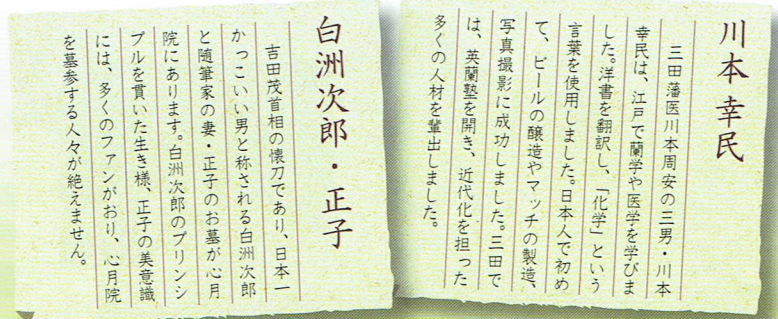 川本幸民
三田藩医川本周安の三男・川本
幸民は、江戸で蘭学や医学を学びま
した。洋書を翻訳し、「化学」という
言葉を使用しました。日本人で初め
て、ビールの醸造やマッチの製造、
写真撮影に成功しました。三田で
は、英蘭塾を開き、近代化を担った
多くの人材を輩出しました。
白洲次郎・正子
吉田茂首相の懐刀であり、日本一
かっこいい男と称される白洲次郎
と随筆家の妻・正子のお墓が心月
院にあります。白洲次郎のプリンシ
プルを貫いた生き様、正子の美意識
には、多くのファンがおり、心月院
を墓参する人々が絶えません。